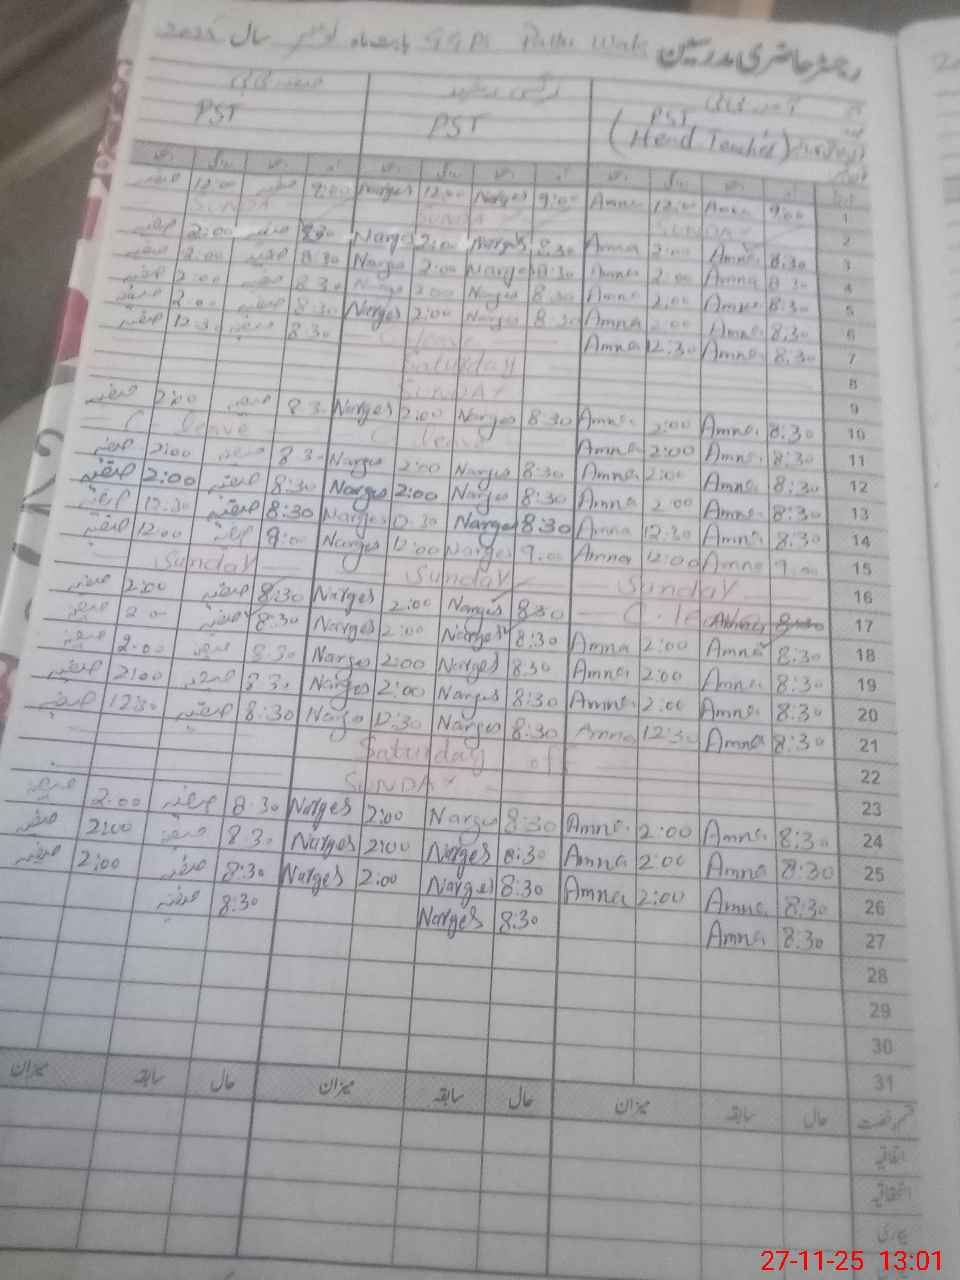 رجسٹر حاضری مدرسین GGPS بابت ماہ نومبر سال 2025
PST PST PST
(Head Teacher)
12:00 9:00 Narges 12:00 Narges 9:00 Amna 12:00 Amna 9:00 1
SUNDAY SUNDAY SUNDAY 2
2:00 صفیہ 8:30 Narges 2:00 Narges 8:30 Amna 2:00 Amna 8:30 3
2:00 صفیہ 8:30 Narges 2:00 Narges 8:30 Amna 2:00 Amna 8:30 4
2:00 8:30 Narges 2:00 Narges 8:30 Amna 2:00 Amna 8:30 5
صفیہ 2:00 صفیہ 8:30 Narges 2:00 Narges 8:30 Amna 2:00 Amna 8:30 6
صفیہ 12:30 صفیہ 8:30 C leave Amna 12:30 Amna 8:30 7
Saturday 8
SUNDAY 9
صفیہ 2:00 صفیہ 8:30 Narges 2:00 Narges 8:30 Amna 2:00 Amna 8:30 10
C leave C leave Amna 2:00 Amna 8:30 11
صفیہ 2:00 صفیہ 8:30 Narges 2:00 Narges 8:30 Amna 2:00 Amna 8:30 12
صفیہ 2:00 صفیہ 8:30 Narges 2:00 Narges 8:30 Amna 2:00 Amna 8:30 13
صفیہ 12:30 صفیہ 8:30 Narges 12:30 Narges 8:30 Amna 12:30 Amna 8:30 14
صفیہ 12:00 صفیہ 9:00 Narges 12:00 Narges 9:00 Amna 12:00 Amna 9:00 15
Sunday Sunday Sunday 16
صفیہ 2:00 صفیہ 8:30 Narges 2:00 Narges 8:30 C. 8:30 17
صفیہ 2:00 صفیہ 8:30 Narges 2:00 Narges 8:30 Amna 2:00 Amna 8:30 18
صفیہ 2:00 صفیہ 8:30 Narges 2:00 Narges 8:30 Amna 2:00 Amna 8:30 19
صفیہ 2:00 صفیہ 8:30 Narges 2:00 Narges 8:30 Amna 2:00 Amna 8:30 20
صفیہ 12:30 صفیہ 8:30 Narges 12:30 Narges 8:30 Amna 12:30 Amna 8:30 21
Saturday off 22
SUNDAY 23
صفیہ 2:00 صفیہ 8:30 Narges 2:00 Narges 8:30 Amna 2:00 Amna 8:30 24
صفیہ 2:00 صفیہ 8:30 Narges 2:00 Narges 8:30 Amna 2:00 Amna 8:30 25
صفیہ 2:00 صفیہ 8:30 Narges 2:00 Narges 8:30 Amna 2:00 Amna 8:30 26
صفیہ 8:30 Narges 8:30 Amna 8:30 27
28
29
30
31
قسم رخصت حال سابقہ میزان حال سابقہ میزان حال سابقہ میزان
اتفاقیہ
استحقاقیہ
بیماری
27-11-25 13:01